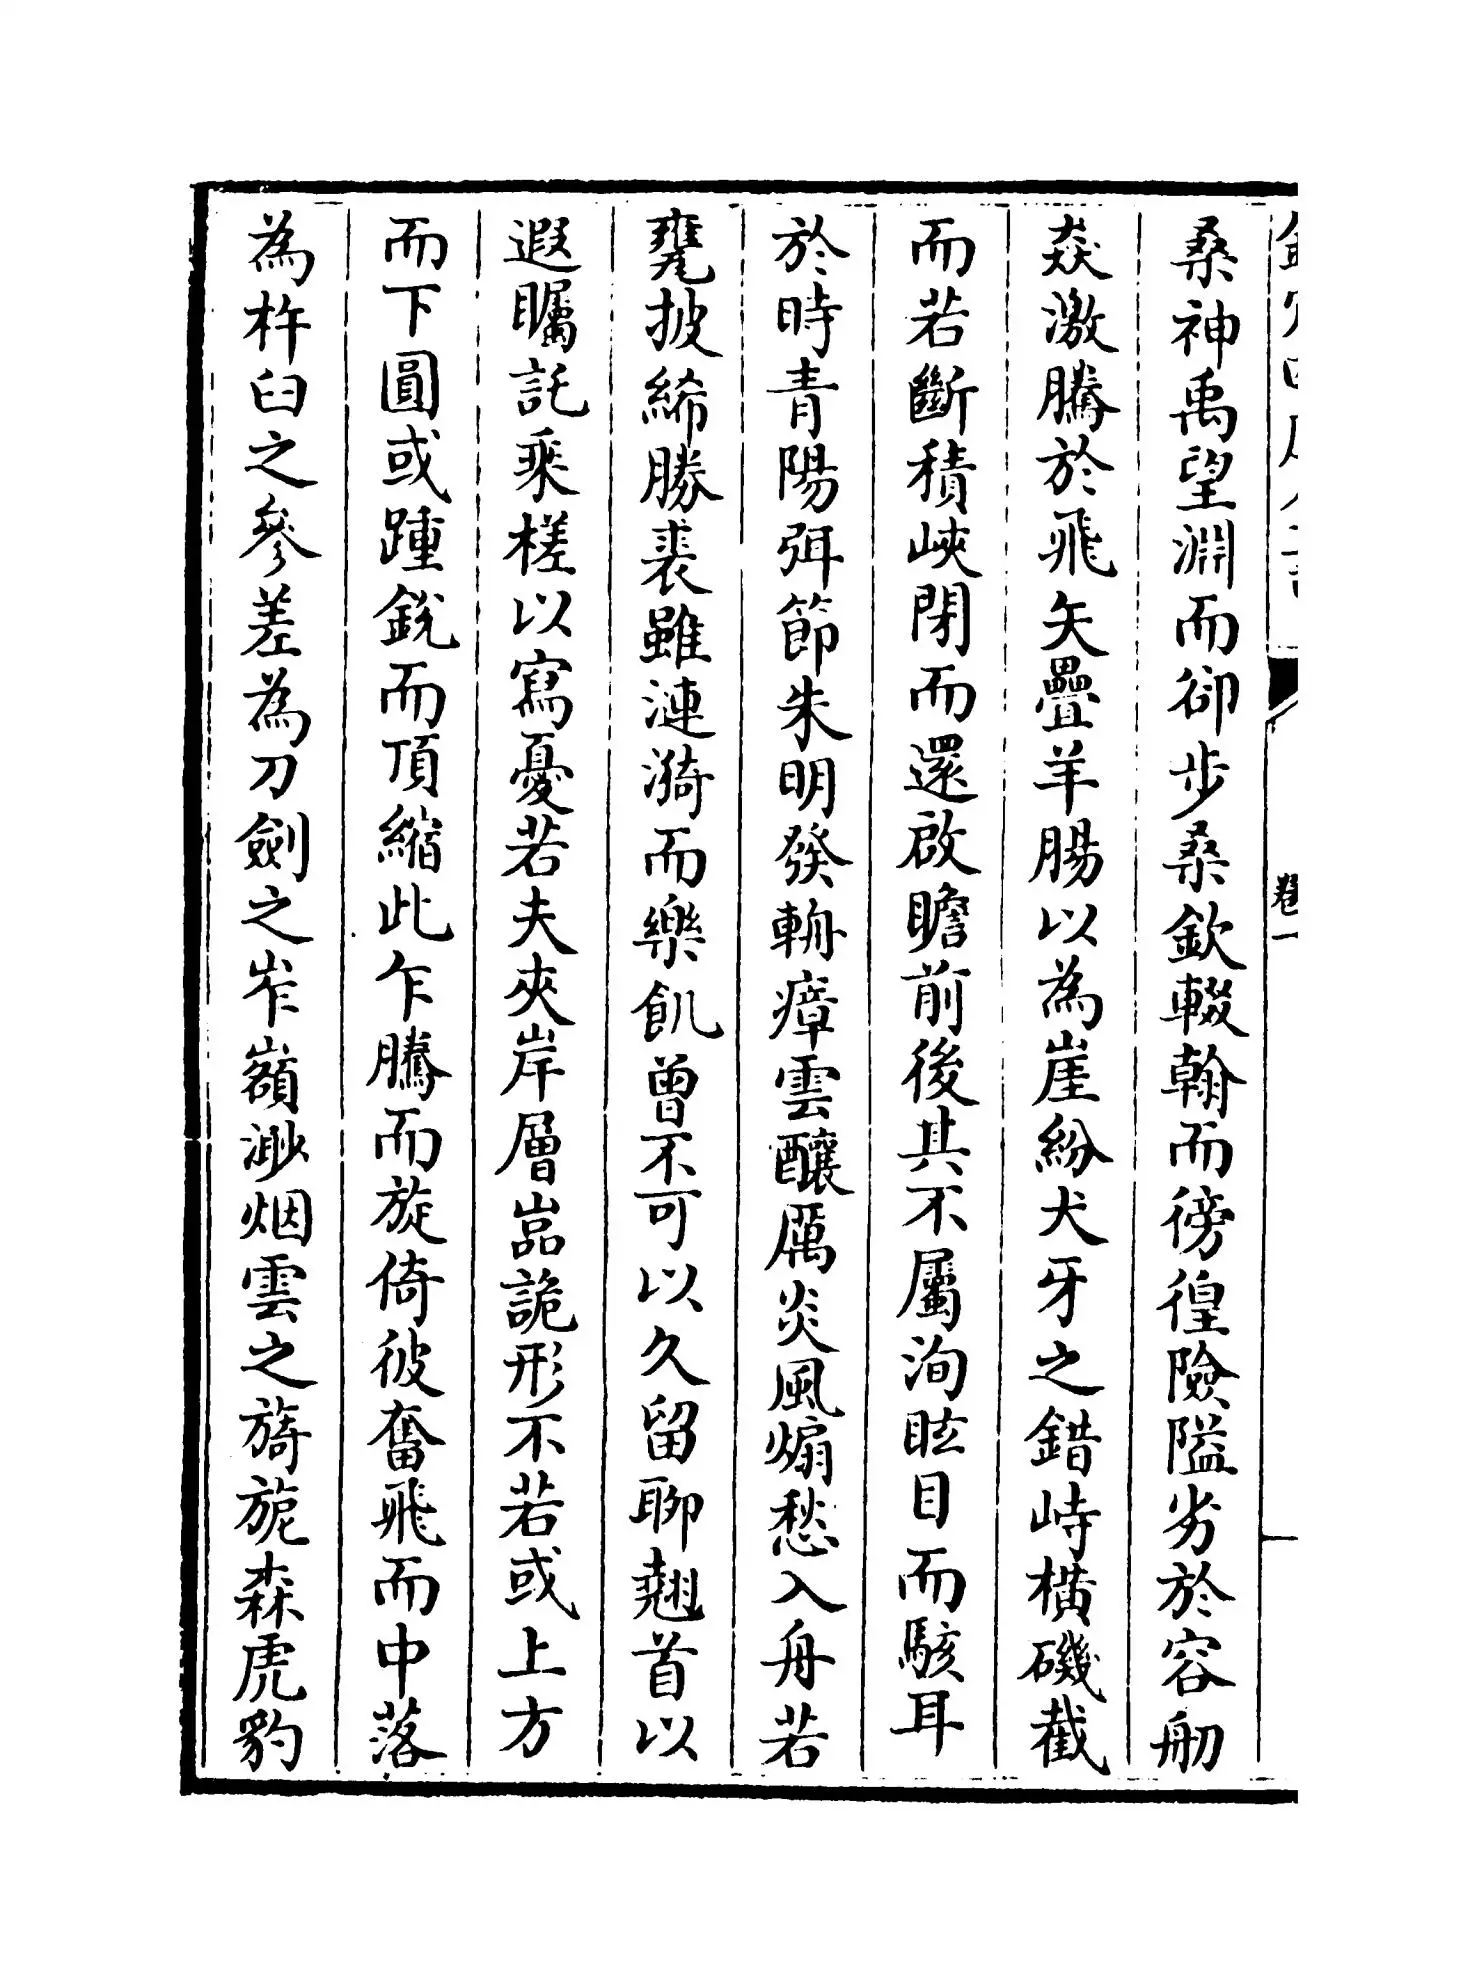 桑神禹望淵而卻步桑欽輟翰而徬徨險隘劣於容舠
焱激騰於飛矢疊羊腸以為崖紛犬牙之錯峙橫磯截
而若斷積峽閉而還啟瞻前後其不屬洵眩目而駭耳
於時青陽弭節朱明發輈瘴雲釀厲炎風煽愁入舟若
甕披絺勝裘雖漣漪而樂飢曾不可以久留聊翹首以
遐矚託乘槎以寫憂若夫夾岸層嵓詭形不若或上方
而下圓或踵銳而頂縮此乍騰而旋倚彼奮飛而中落
為杵臼之參差為刀劍之岝嶺渺烟雲之旖旎森虎豹
卷一